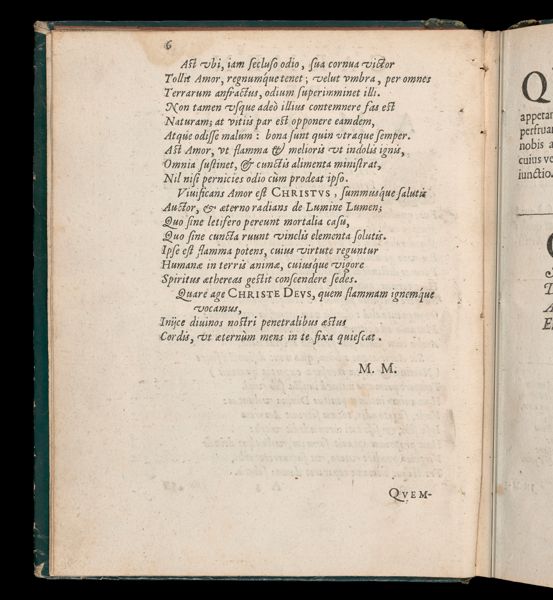 6
Ast vbi, iam secluso odio, sua cornua victor
Tollit Amor, regnumq́ue tenet; velut vmbra, per omnes
Terrarum anfractus, odium superimminet illi.
Non tamen vsque adeò illius contemnere fas est
Naturam; at vitiis par est opponere eamdem,
Atque odisse malum: bona sunt quin vtraque semper.
Ast Amor, vt flamma & melioris vt indolis ignis,
Omnia sustinet, & cunctis alimenta ministrat,
Nil nisi pernicies odio cùm prodeat ipso.
Viuificans Amor est CHRISTVS, summusq́ue salutis
Auctor, & æterno radians de Lumine Lumen;
Quo sine letifero pereunt mortalia casu,
Quo sine cuncta ruunt vinclis elementa solutis.
Ipse est flamma potens, cuius virtute reguntur
Humanæ in terris animæ, cuiusq́ue vigore
Spiritus æthereas gestit conscendere sedes.
Quare age CHRISTE DEVS, quem flammam ignemq́ue
vocamus,
Inijce diuinos nostri penetralibus æstus
Cordis, vt æternùm mens in te fixa quiescat.
M. M.
QVEM-
Q
appetan
perfruan
nobis a
cuius ve
iunctio.